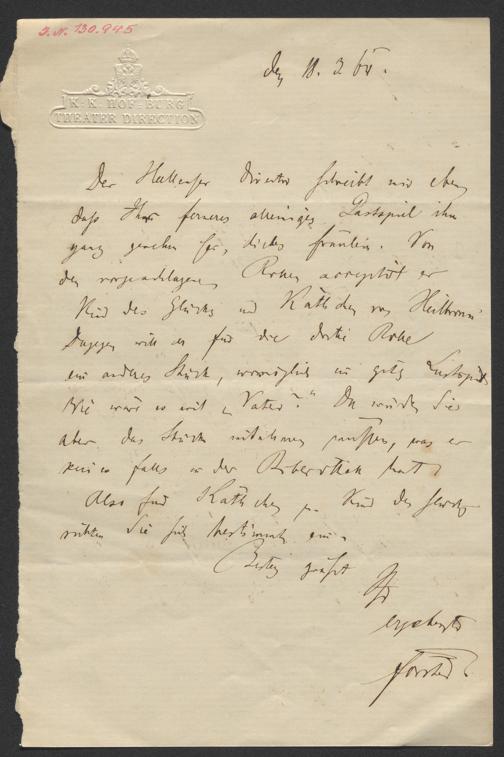 J.N. 130.945
K. K. HOF-BURG
THEATER DIRECTION
den 18.
Der Director schreibt mir eben
daß Ihr ferneres alleiniges Gastspiel ihm
ganz genehm sei, liebes Fräulein. Von
den vorgeschlagenen Rollen acceptirt er
Kind des Glücks und Käthchen von Heilbronn.
Dagegen will er für die dritte Rolle
ein anderes Stück, womöglich ein Lustspiel.
Wie wäre es mit „Vater“? Da würden Sie
aber das Stück mitnehmen müssen, was er
falls in der Bibliothek hat
Also für Käthchen u. Kind des Glücks
richten Sie sich bestimmt ein.
Bestens grüßt
Ihr
ergebenster
Förster